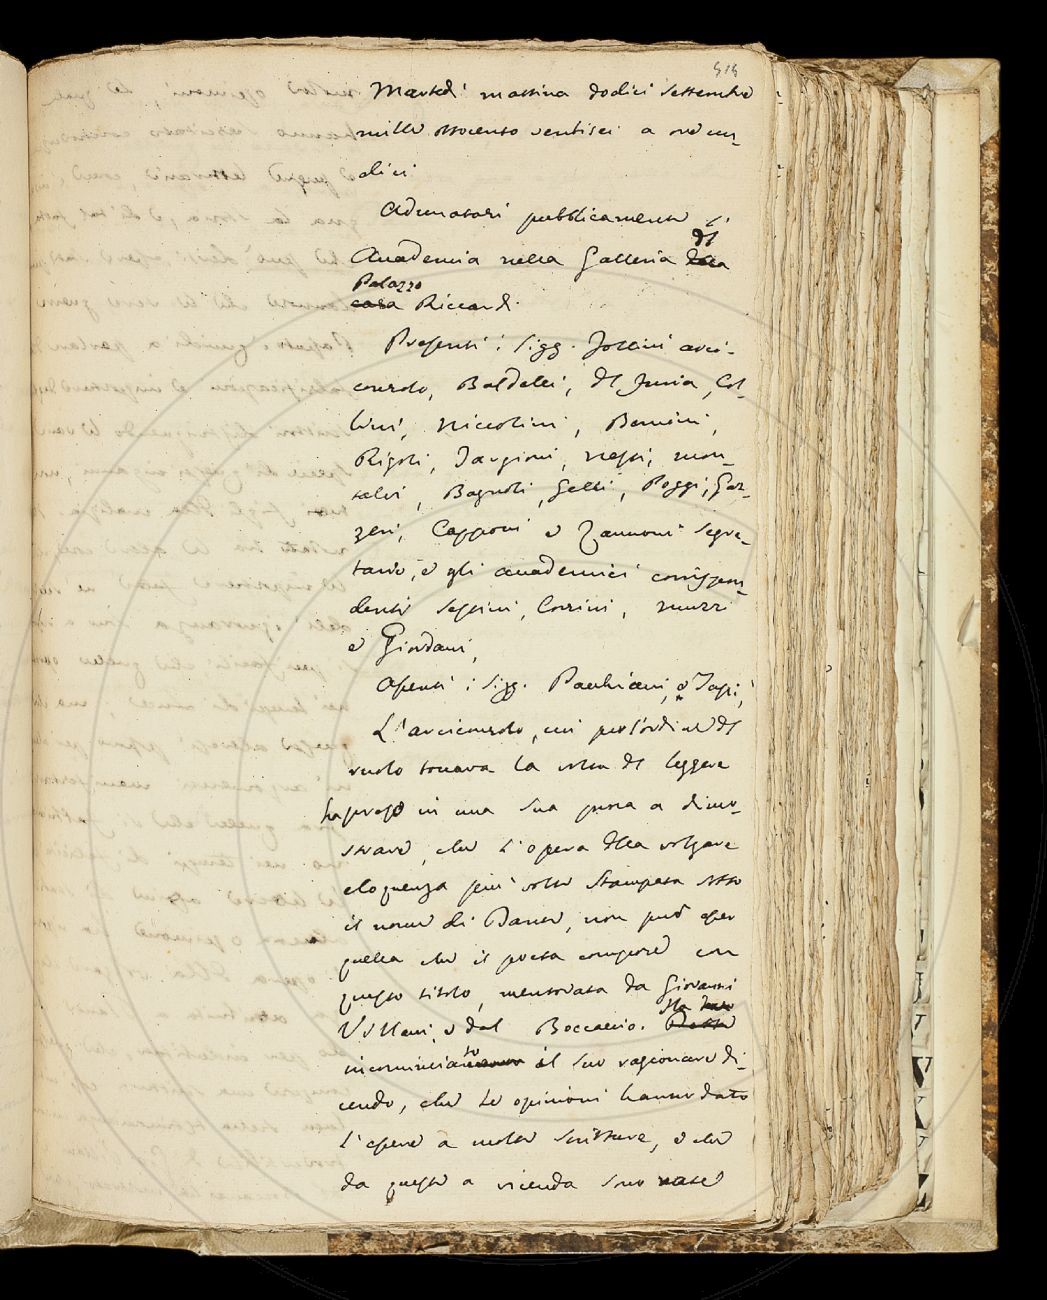 515
Martedì mattina dodici Settembre
mille ottocento ventisei a ore un-
dici
Adunatasi pubblicamente l'
Accademia nella Galleria della del
casa Palazzo Riccardi
Presenti i Sigg. Follini arci-
consolo, Baldelli, Del Furia, Col-
lini, Niccolini, Bencini,
Rigoli, Targioni, Nesti, Mon-
talvi, Bagnoli, Gelli, Poggi, Gaz-
zeri, Capponi e Zannoni Segre-
tario, e gli accademici corrispon-
denti Pessini, Corsini, Muzzi
e Giordani,
Assenti i Sigg. Pacchiani, e Tassi,
L'arciconsolo, cui per l'ordine del
ruolo toccava la volta di leggere
ha preso in una sua prosa a dimo-
strare, che l'opera della volgare
eloquenza più volte stampata sotto
il nome di Dante, non può esser
quella che il poeta compose con
questo titolo, mentovata da Giovanni
Villani, e dal Boccaccio. Ha
incominciato il suo ragionare di-
cendo, che le opinioni hanno dato
l'essere a molte scritture, e che
da queste a vicenda sono nate